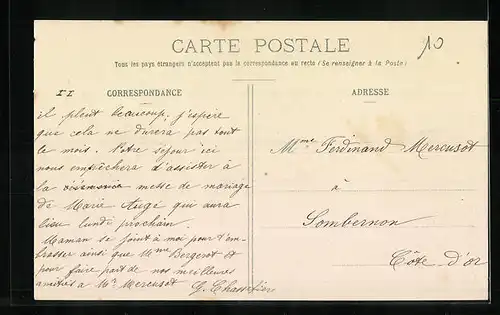 10
CARTE POSTALE
Tous les pays étrangers n'acceptent pas la correspondance au recto (Se renseigner à la Poste)
II CORRESPONDANCE
il pleut beaucoup; j'espère
que cela ne durera pas tout
le mois. Notre séjour ici
nous empêchera d'assister à
la messe de mariage
de Marie Augé qui aura
lieu lundi prochain.
Maman se joint à moi pour t'em-
brasser ainsi que Mme Bergerot et
pour faire part de nos meilleures
amitiés à Mr Mercusot G. Chassefier
ADRESSE
Mme Ferdinand Mercusot
à
Sombernon
Côte d'or